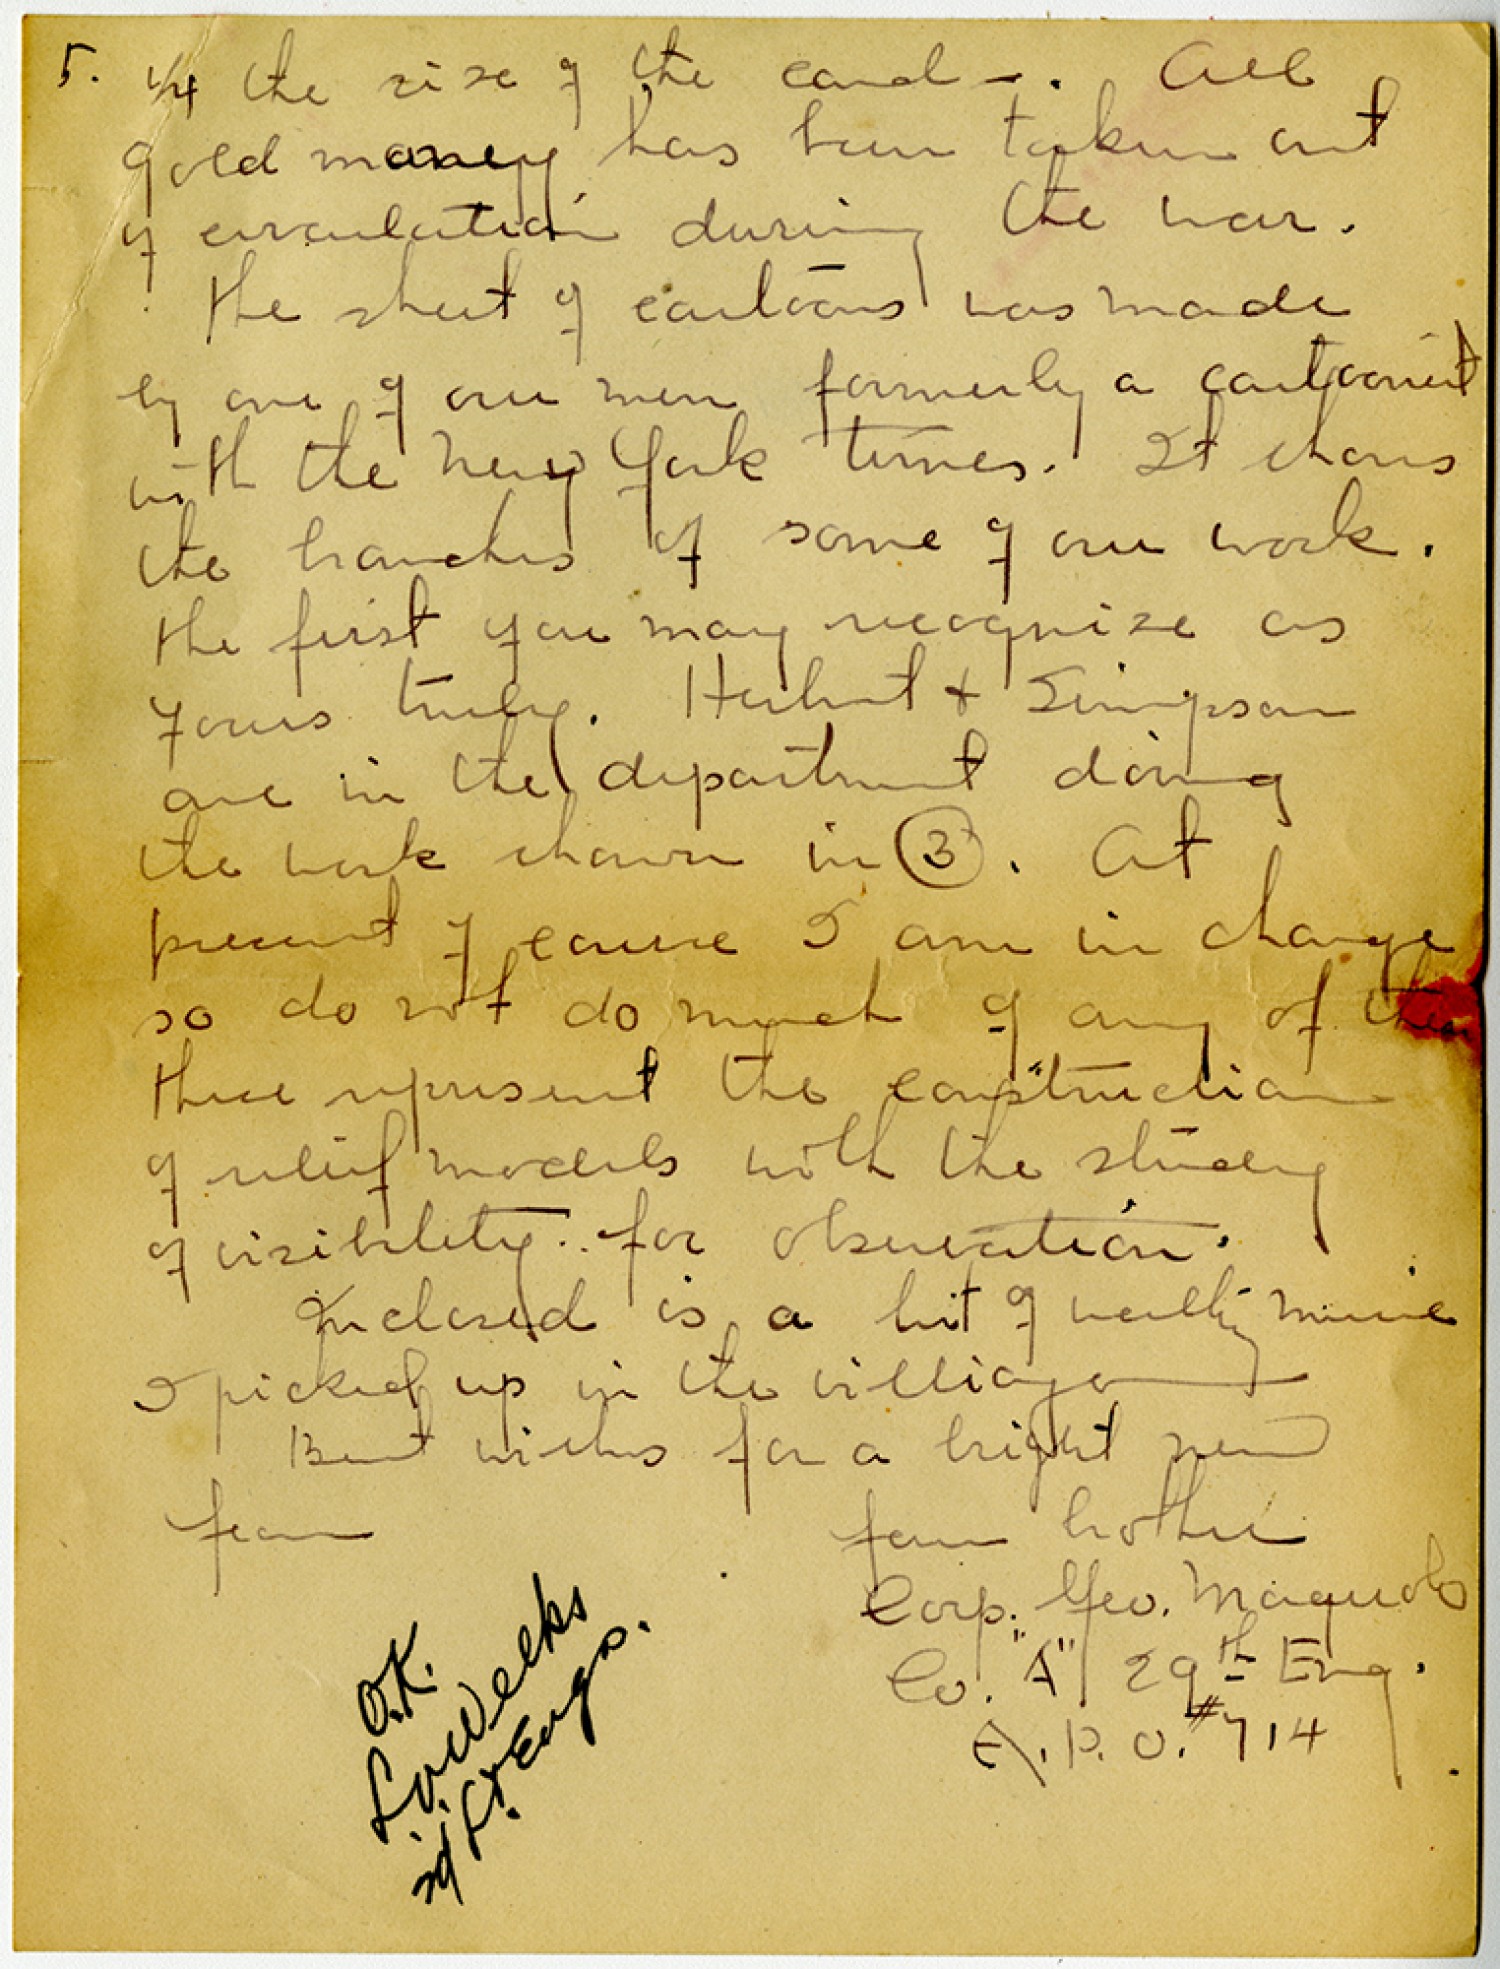 5. 1/4 the size of the card -. All
gold money has been taken out
of circulation during the war.
The sheet of cartoons was made
by one of our men formerly a cartoonist
with the New York Times. It shows
the branches of some of our work.
the first you may recognize as
yours truly. Herbert + Simpson
are in the department doing
the work shown in 3. At
present of course I am in charge
so do not do much of any of them
these represent the construction
of relief models with the study
of visibility.. for observation.
Inclosed is a bit of
I picked up in the villiage
Best wishes for a bright new
year
your brother
Corp. Geo. Maquolo
Co. "A" 29th Eng.
A.P.O. #714
O.K.
L.O. Weeks
2d Lt. Engs.